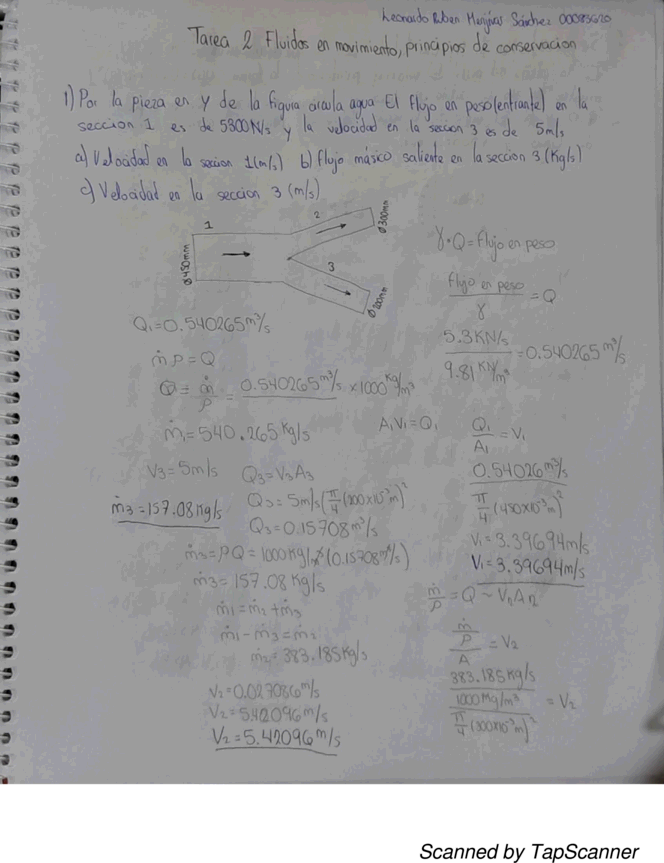 Leonardo Ruben Menjivar Sánchez 00085620
Tarea 2 Fluidos en movimiento, principios de conservacion
1) Por la pieza en Y de la figura circula agua El flujo en peso (entrante) en la
seccion 1 es de 5300N/s y la velocidad en la secion 3 es de 5m/s
a) Velocidad en la secion 1(m/s) b) flujo másico saliente en la seccion 3 (Kg/s)
c) Velocidad en la seccion 3 (m/s)
1
2
3
Ø450mm
Ø300mm
Ø200mm
γ·Q = flujo en peso
flujo en peso / γ = Q
5.3KN/s / 9.81 KN/m³ = 0.540265 m³/s
Q₁=0.540265m³/s
ṁ ρ = Q
Q = ṁ/ρ = 0.540265m³/s ×1000Kg/m³
ṁ₁=540.265Kg/s
A₁V₁=Q₁
Q₁/A₁ = V₁
0.54026m³/s
π/4 (450x10⁻³m)²
V₁=3.39694m/s
V₁=3.39694m/s
V₃=5m/s Q₃=V₃A₃
ṁ₃=157.08Kg/s
Q₃= 5m/s(π/4(200x10⁻³m)²
Q₃=0.15708m³/s
ṁ₃=ρQ=1000Kg/m³(0.15708m³/s)
ṁ₃=157.08Kg/s
ṁ₁=ṁ₂+ṁ₃
ṁ₁-ṁ₃=ṁ₂
ṁ₂=383.185Kg/s
ṁ/ρ = Q ~ VₙAₙ
ṁ/ρ / A = V₂
383.185Kg/s
1000Kg/m³
π/4 (300x10⁻³m)²
= V₂
V₂=5.42096m/s
V₂=5.42096m/s
Scanned by TapScanner